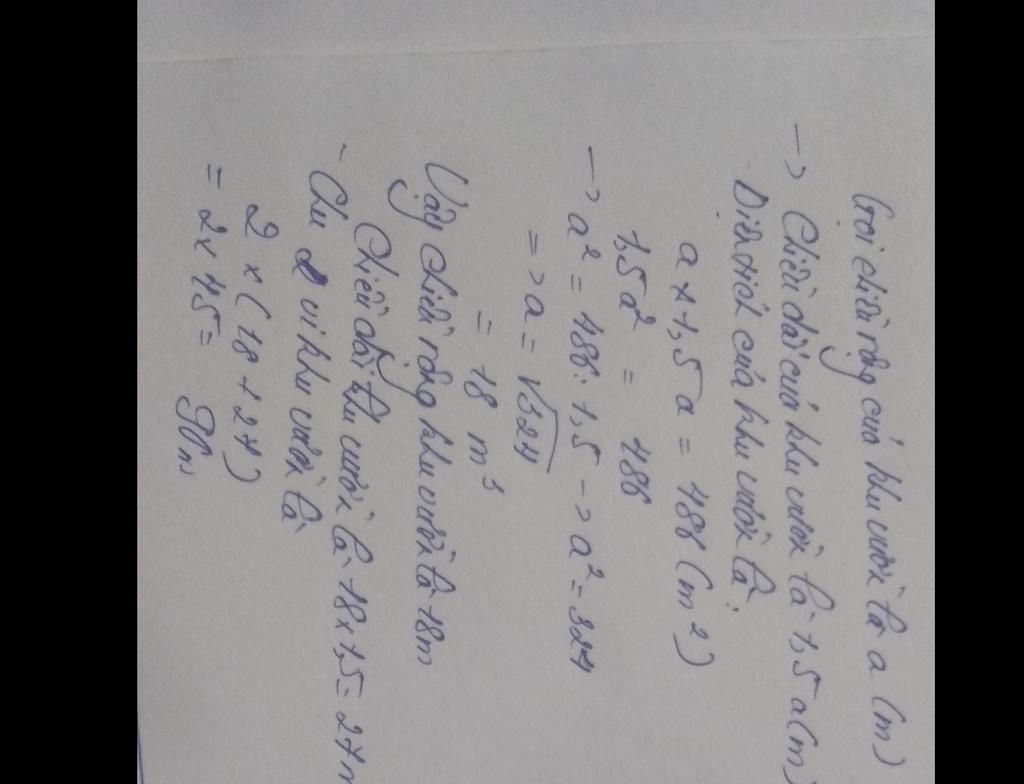 Gọi chiều rộng của khu vườn là a (m)
-> Chiều dài của khu vườn là 1,5a (m)
Diện tích của khu vườn là:
a x 1,5a = 486 (m²)
1,5a² = 486
-> a² = 486 : 1,5 -> a² = 324
=> a = √324
= 18 m³
Vậy chiều rộng khu vườn là 18m
Chiều dài khu vườn là 18 x 1,5 = 27m
- Chu vi khu vườn là
2 x (18 + 27)
= 2 x 45 = 90m